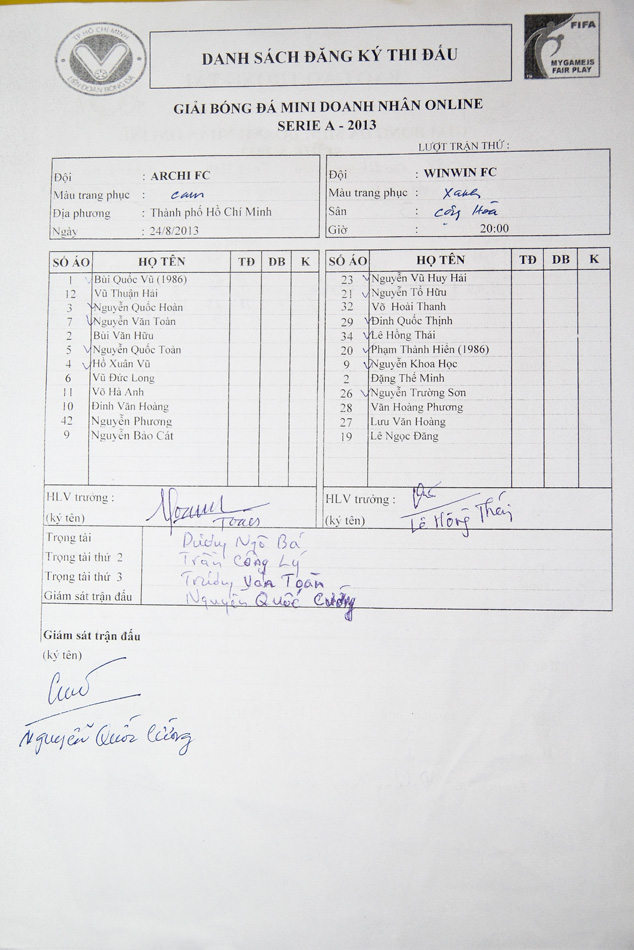 TP HỒ CHÍ MINH
LIÊN ĐOÀN BÓNG ĐÁ
DANH SÁCH ĐĂNG KÝ THI ĐẤU
FIFA
MY GAME IS
FAIR PLAY
GIẢI BÓNG ĐÁ MINI DOANH NHÂN ONLINE
SERIE A - 2013
LƯỢT TRẬN THỨ :
Đội : ARCHI FC
Màu trang phục : cam
Địa phương : Thành phố Hồ Chí Minh
Ngày : 24/8/2013
Đội : WINWIN FC
Màu trang phục : xanh
Sân : Cộng Hòa
Giờ : 20:00
SỐ ÁO HỌ TÊN TĐ DB K
1 Bùi Quốc Vũ (1986)
12 Vũ Thuận Hải
3 Nguyễn Quốc Hoàn
7 Nguyễn Văn Toàn
2 Bùi Văn Hữu
5 Nguyễn Quốc Toàn
4 Hồ Xuân Vũ
6 Vũ Đức Long
11 Võ Hà Anh
10 Đinh Văn Hoàng
42 Nguyễn Phương
9 Nguyễn Bảo Cát
SỐ ÁO HỌ TÊN TĐ DB K
23 Nguyễn Vũ Huy Hải
21 Nguyễn Tố Hữu
32 Võ Hoài Thanh
29 Đinh Quốc Thịnh
34 Lê Hồng Thái
20 Phạm Thành Hiển (1986)
9 Nguyễn Khoa Học
2 Đặng Thế Minh
26 Nguyễn Trường Sơn
28 Văn Hoàng Phương
27 Lưu Văn Hoàng
19 Lê Ngọc Đăng
HLV trưởng :
(ký tên) Toàn
HLV trưởng :
(ký tên) Lê Hồng Thái
Trọng tài Dương Ngô Bá
Trọng tài thứ 2 Trần Công Lý
Trọng tài thứ 3 Trương Văn Toàn
Giám sát trận đấu Nguyễn Quốc Cường
Giám sát trận đấu
(ký tên)
Nguyễn Quốc Cường